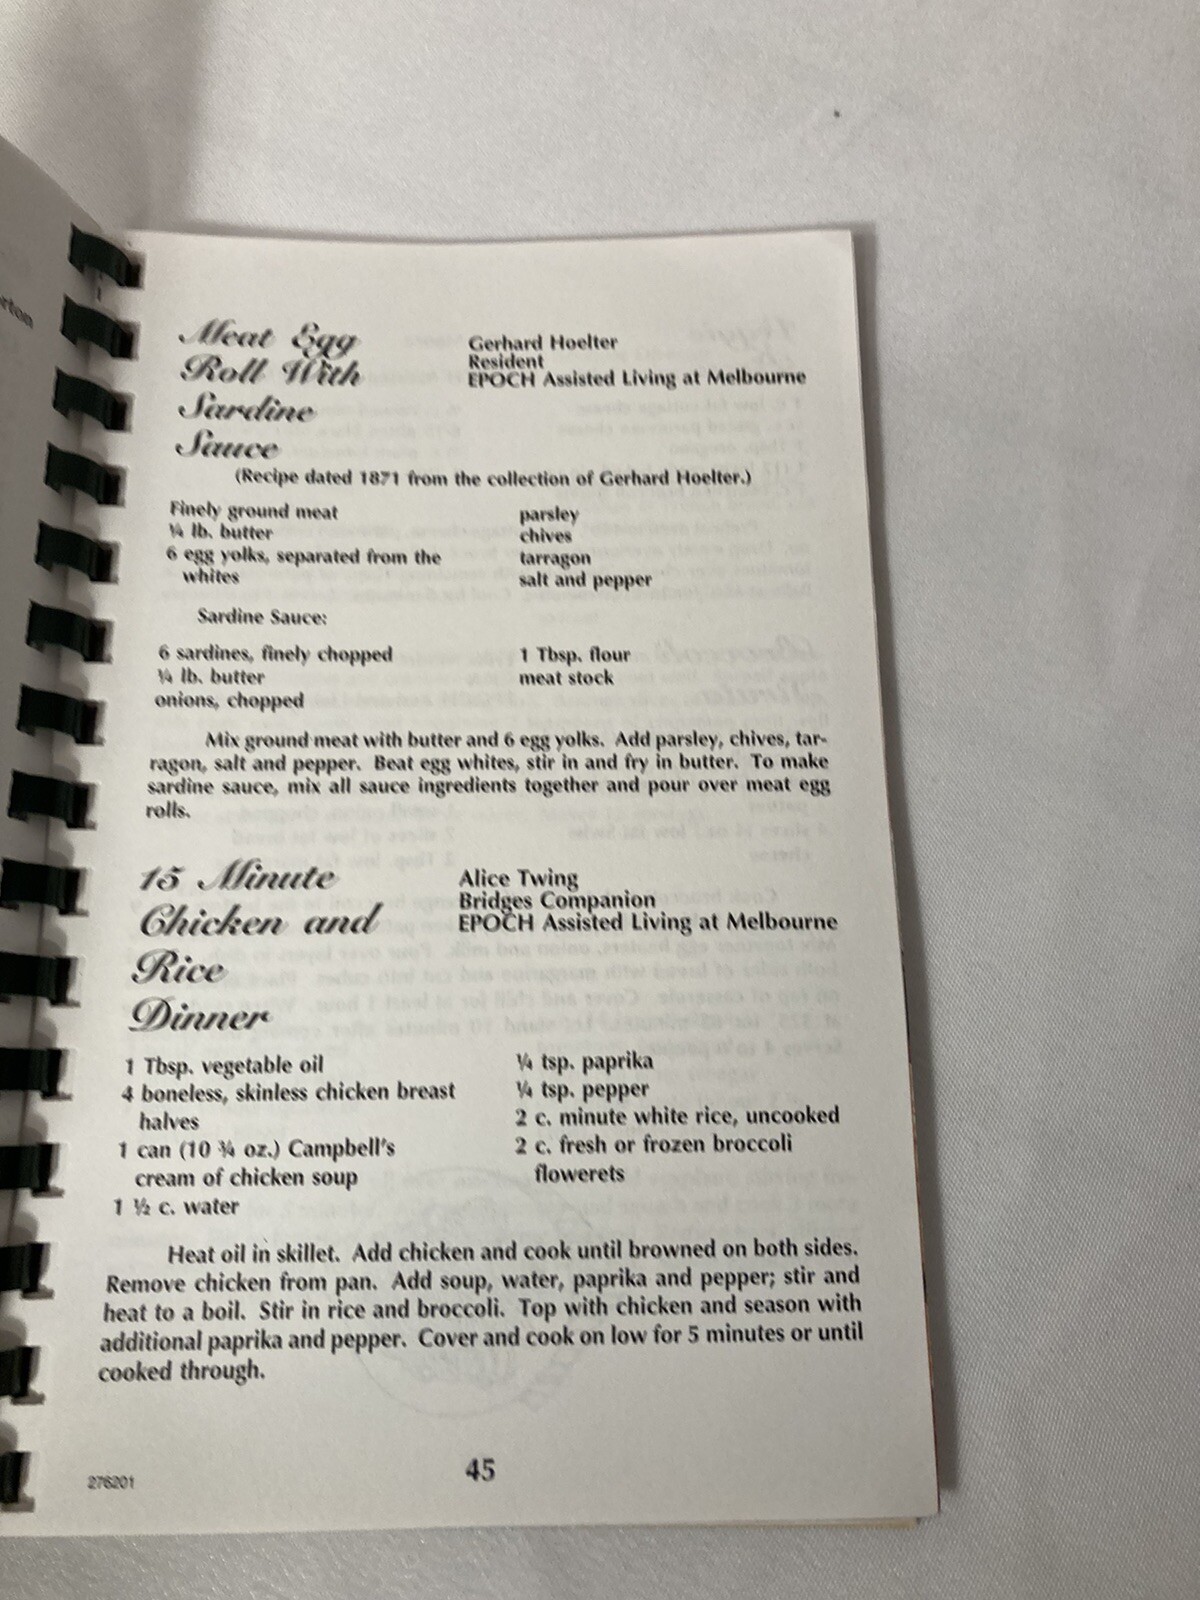 Meat Egg
Roll With
Sardine
Sauce
Gerhard Hoelter
Resident
EPOCH Assisted Living at Melbourne
(Recipe dated 1871 from the collection of Gerhard Hoelter.)
Finely ground meat
¼ lb. butter
6 egg yolks, separated from the
whites
parsley
chives
tarragon
salt and pepper
Sardine Sauce:
6 sardines, finely chopped
¼ lb. butter
onions, chopped
1 Tbsp. flour
meat stock
Mix ground meat with butter and 6 egg yolks. Add parsley, chives, tar-
ragon, salt and pepper. Beat egg whites, stir in and fry in butter. To make
sardine sauce, mix all sauce ingredients together and pour over meat egg
rolls.
15 Minute
Chicken and
Rice
Dinner
Alice Twing
Bridges Companion
EPOCH Assisted Living at Melbourne
1 Tbsp. vegetable oil
4 boneless, skinless chicken breast
halves
1 can (10 ¾ oz.) Campbell's
cream of chicken soup
1 ½ c. water
¼ tsp. paprika
¼ tsp. pepper
2 c. minute white rice, uncooked
2 c. fresh or frozen broccoli
flowerets
Heat oil in skillet. Add chicken and cook until browned on both sides.
Remove chicken from pan. Add soup, water, paprika and pepper; stir and
heat to a boil. Stir in rice and broccoli. Top with chicken and season with
additional paprika and pepper. Cover and cook on low for 5 minutes or until
cooked through.
276201
45